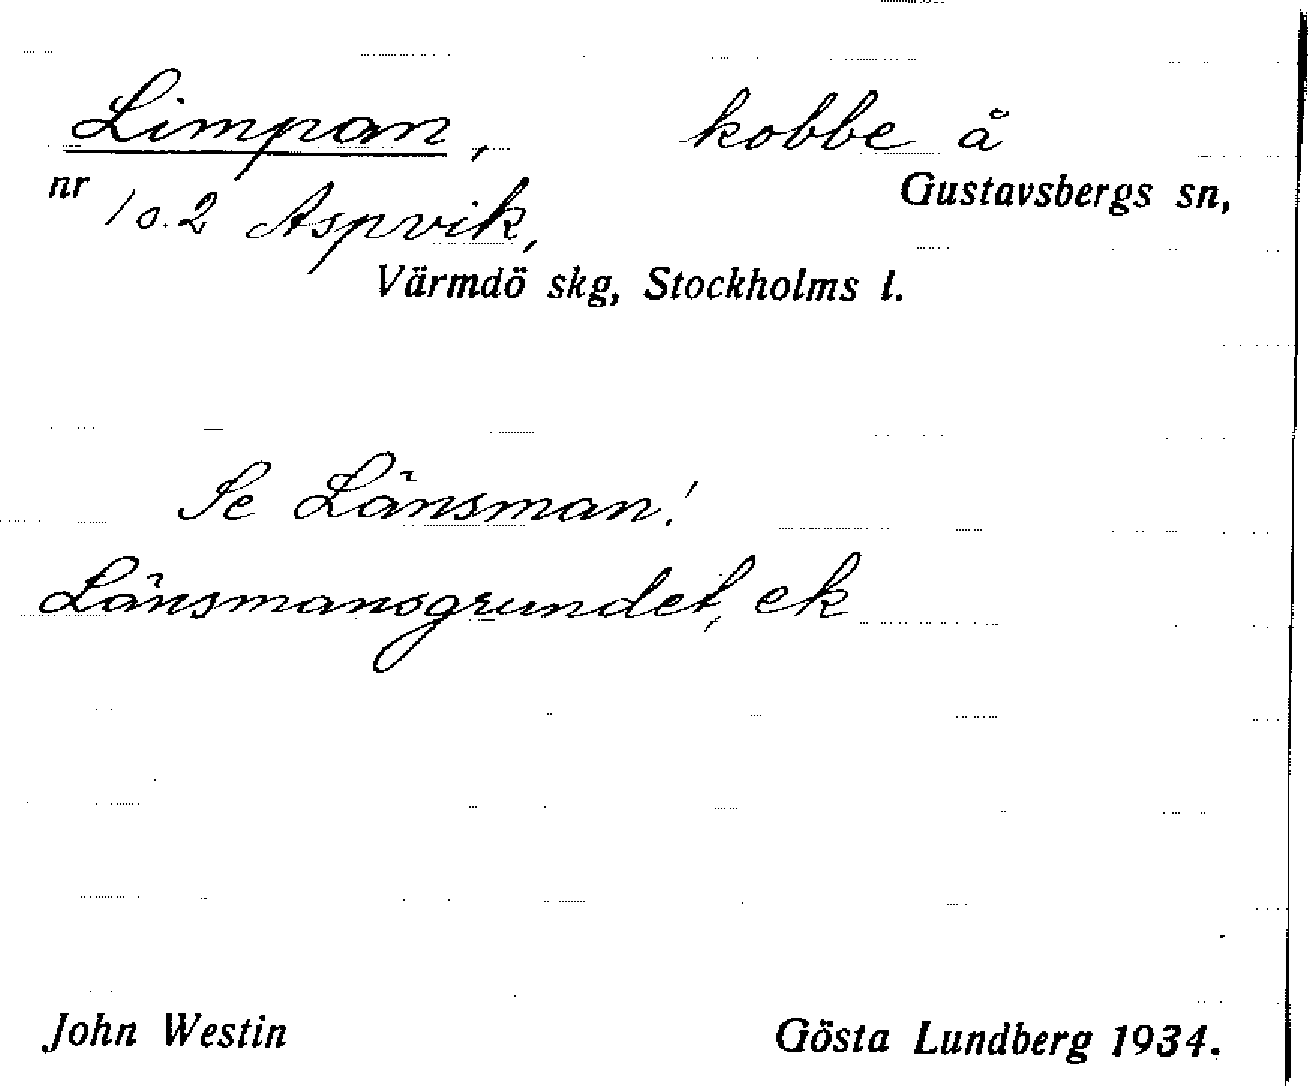 Limpan, kobbe å
nr 1 o. 2 Aspvik, Gustavsbergs sn,
Värmdö skg, Stockholms l.
Se Länsman!
Länsmansgrundet, ek
John Westin Gösta Lundberg 1934.